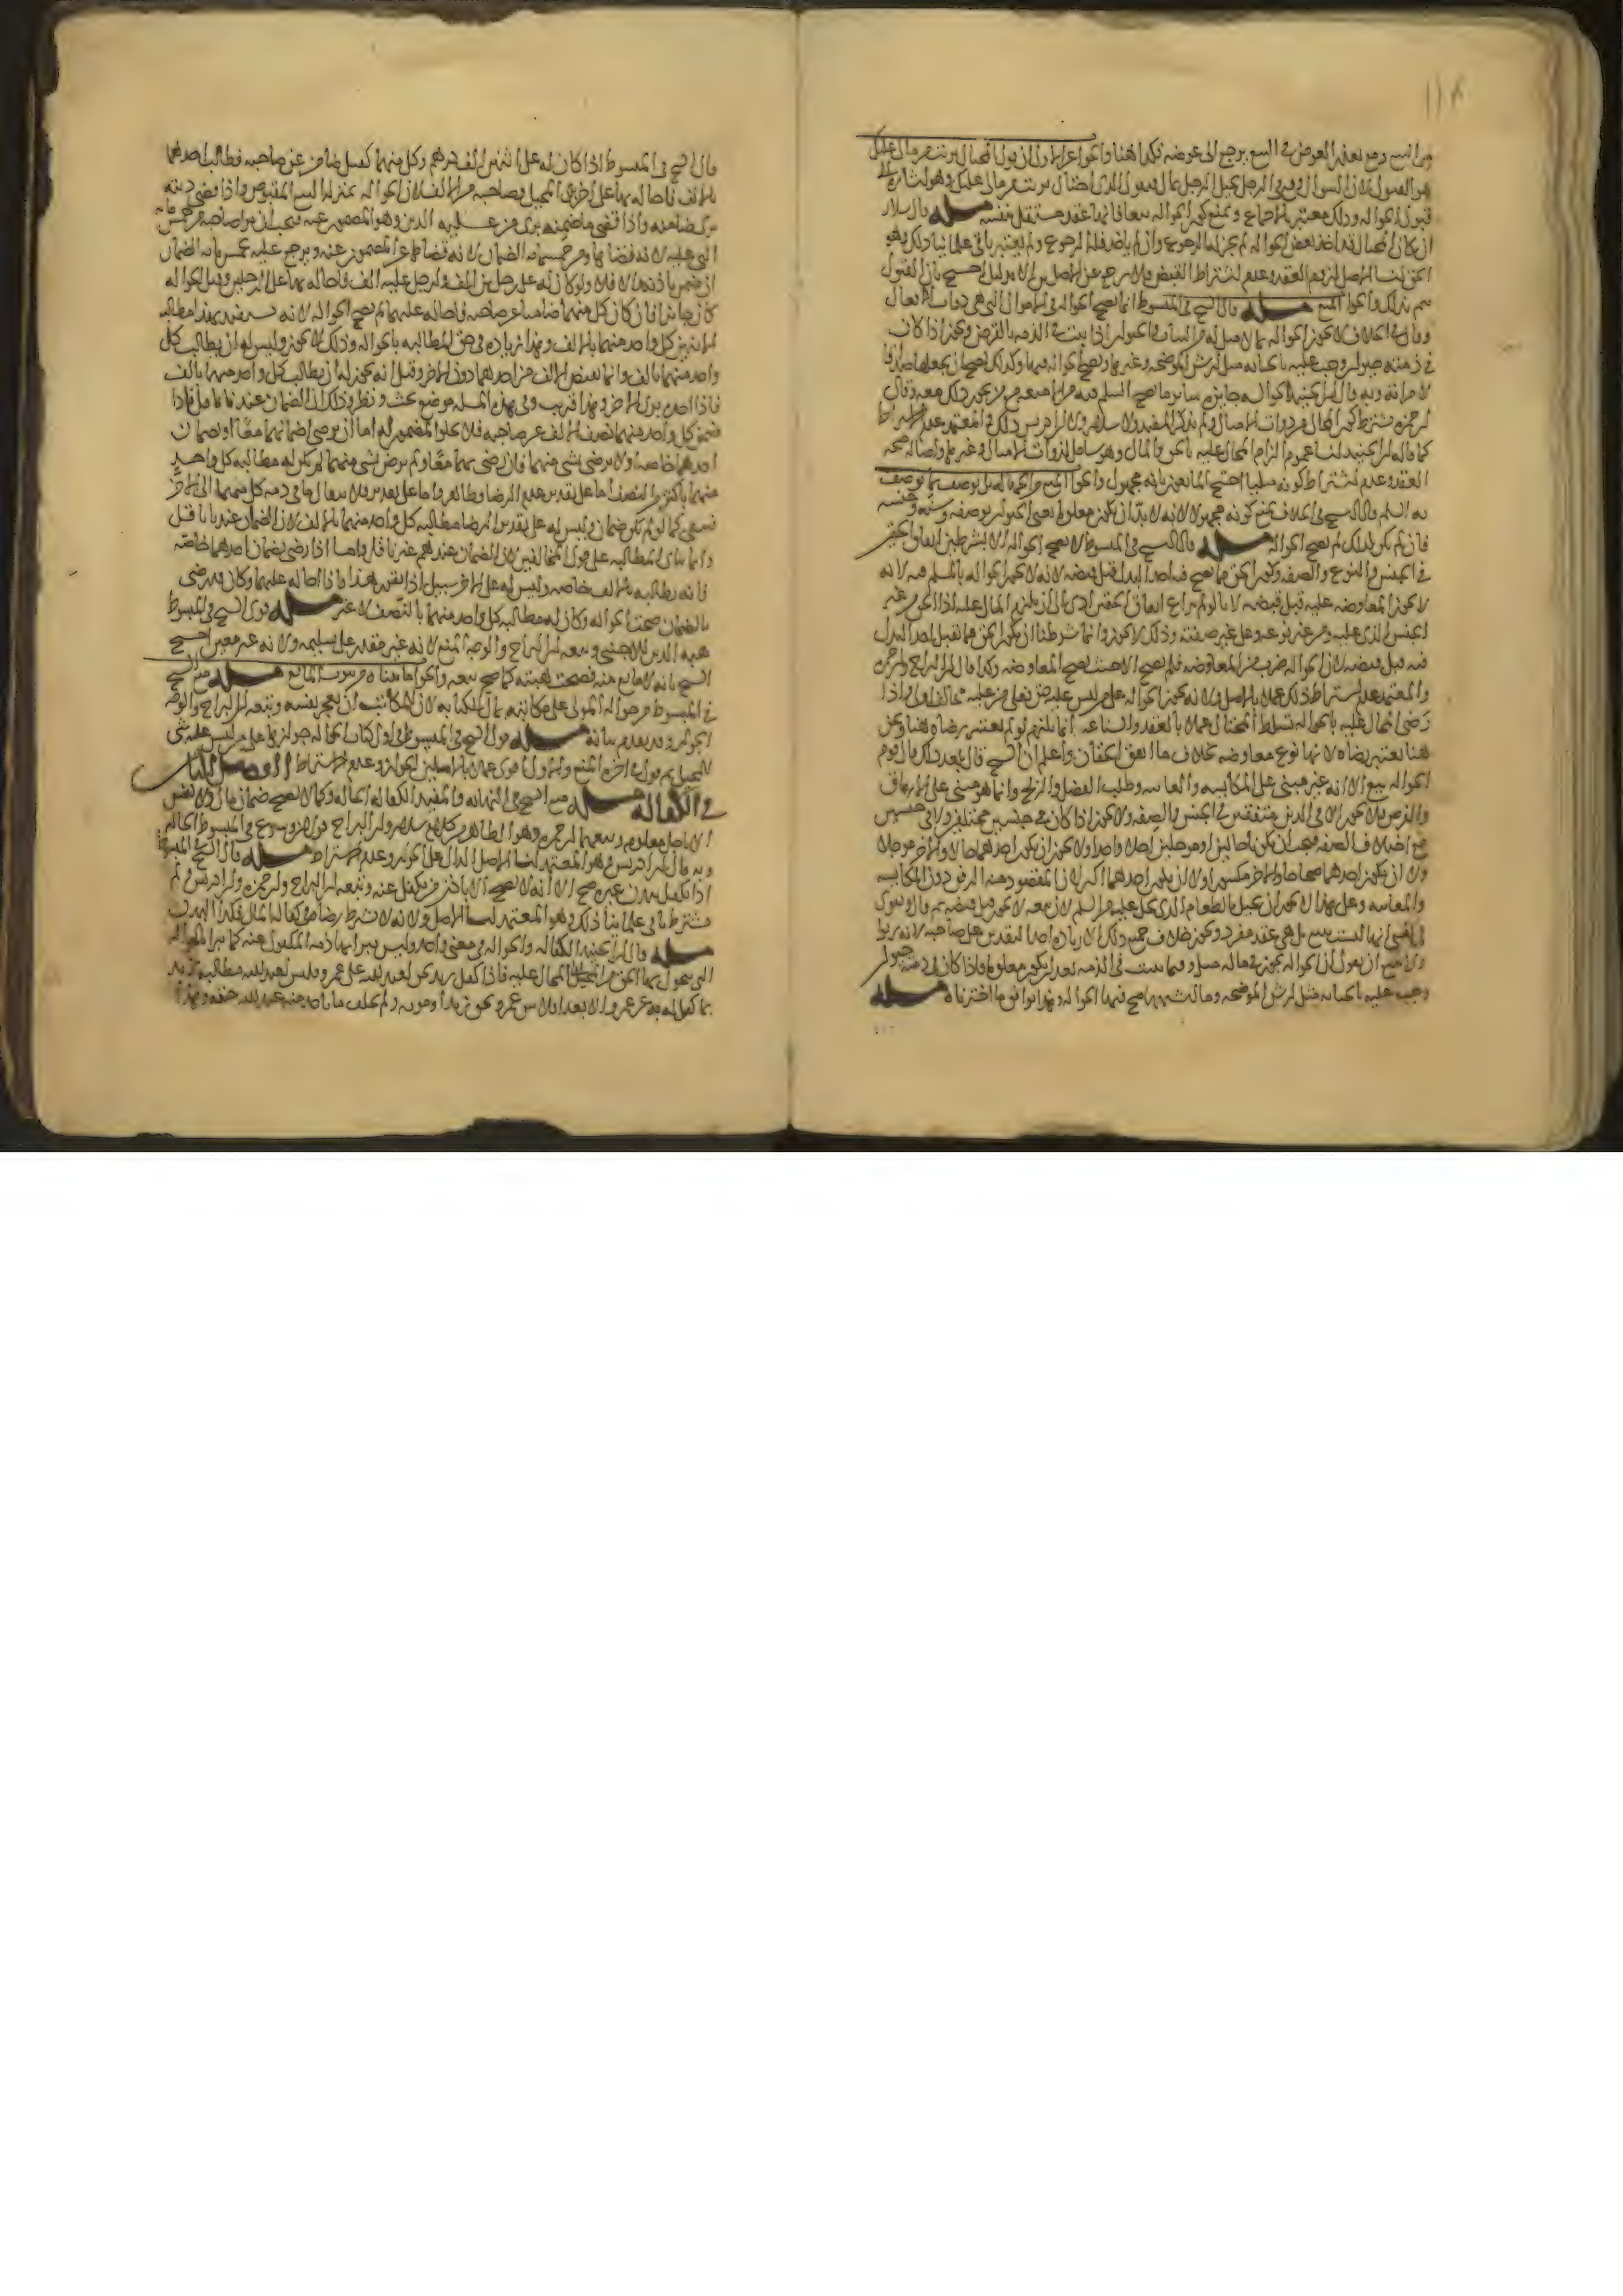 من البيع ومع تعذر العوض في البيع يرجع الى عوضه فكذا هنا والجواب عن الاول ان يقول المحتال برئت من مالي عليك
هو القبول
قبول الحواله وذلك معتبر بالاجماع و نمنع كون الحواله بيعا فانها عقد مستقل بنفسه مسله قال سلار
ان كان المحتال قد اخذ بعض الحواله لم يجز له الرجوع وان لم ياخذ فله الرجوع ولم يعتبر باقي علمائنا ذلك وهو
الحق لنا الاصل لزوم العقد وعدم اشتراط القبض فلا يخرج عن الاصل الا بدليل احتج بان القبول
يتم بذلك والجواب المنع مسله قال الشيخ في المبسوط انما يصح الحواله في الاموال التي هي ذوات الامثال
وقال في الخلاف لا يجوز الحواله بما لا مثل له من الثياب والحيوان اذا ثبت في الذمه بالقرض ويجوز اذا كان
في ذمته حيوان وجب عليه بالجنايه مثل ارش الموضحه وغيرها ويصح الحواله فيها وكذلك يصح ان يجعلها صداقا
لامراة وبه قال ابن الجنيد الحواله جايزه بسائر ما صح السلم فيه
ابن حمزه يشترط كون المال من ذوات الامثال ولم يذكر المفيد ولا سلار ولا ابن ادريس ذلك والمعتمد عدم الاشتراط
كما قاله ابن الجنيد لنا عموم الزام المحال عليه بالحق والمال وهو شامل لذوات الامثال وغيرها ولاصاله صحه
العقد وعدم اشتراط كونه مثليا احتج المانعون بانه مجهول والجواب المنع من الجهاله بل يوصف بما يوصف
به السلم قال الشيخ في الخلاف نمنع كونه مجهولا لانه لا بد ان يكون معلوما يعني الحيوان بوصفه وسنه وجنسه
فان لم يكن كذلك لم يصح الحواله مسله قال الشيخ في المبسوط لا يصح الحواله الا بشرطين اتفاق الحقين
في الجنس والنوع والصفه وكون الحق مما يصح فيه اخذ البدل قبل قبضه لانه لا يجوز الحواله بالمسلم فيه لانه
لا يجوز المعاوضه عليه قبل قبضه لانا لو لم نراع اتفاق الحقين ادى الى ان يلزم المحال عليه اداء الحق من غير
الجنس الذي عليه ومن غير نوعه وعلى غير صفته وذلك لا يجوز وانما شرطنا ان يكون الحق مما يقبل اخذ البدل
فيه قبل قبضه لان الحواله ضرب من المعاوضه فلم يصح الا حيث يصح المعاوضه وكذا قال ابن البراج وابن حمزه
والمعتمد عدم اشتراط ذلك عملا بالاصل ولانه يجوز الحواله على من ليس عليه حق
رضي المحال عليه بالحواله
هنا يعتبر رضاه لانها نوع معاوضه بخلاف ما اتفق الحقان واعلم ان الشيخ قال بعد ذلك قال قوم
الحواله بيع الا انه غير مبني على المكايسه والمغابنه وطلب الفضل والربح وانما هو مبني على الارفاق
والقرض فلا يجوز الا في الدينين متفقين في الجنس والصفه ولا يجوز اذا كان في جنسين مختلفين ولا في جنس
مع اختلاف الصفه فيجب ان يكونا حالين او مؤجلين اجلا واحدا ولا يجوز ان يكون احدهما حالا والاخر مؤجلا
ولا ان يكون احدهما صحاحا والاخر مكسورا ولا ان يكون احدهما اكثر لان المقصود منه الرفق دون المكايسه
والمغابنه وعلى هذا لا يجوز ان يحيل بالطعام الذي يحل عليه من السلم لان بيعه لا يجوز قبل قبضه ثم قال ويقوى
في نفسي انها ليست ببيع بل هي عقد منفرد ويجوز خلاف جميع ذلك الا زياده احد النقدين على صاحبه لانه ربا
ولا يمتنع ان يقول ان الحواله تجوز فيما له مثل وفيما يثبت في الذمه بعد ان يكون معلوما فاذا كان في ذمته حيوان
وجب عليه بالجنايه مثل ارش الموضحه وما اشبهها صح فيها الحواله وهذا يوافق ما اخترناه مسله
قال الشيخ في المبسوط اذا كان له على اثنين الف درهم وكل منهما كفيل ضامن عن صاحبه فطالب احدهما
بالالف فاحاله بها على اخر برئ المحيل وصاحبه من الالف لان الحواله بمنزله البيع المقبوض واذا قضى دينه
برئ ضامنه واذا قضى ما ضمنه برئ من عليه الدين وهو المضمون عنه فيجب ان يبرا صاحبه من خمس مايه
التي عليه لانه قضاها ومن خمسمايه الضمان لانه قضاها عن المضمون عنه ويرجع عليه بخمس مايه الضمان
ان ضمن باذنه والا فلا ولو كان له على رجلين الف ولرجل عليه الف فاحاله بها على الرجلين وقبل الحواله
كان جائزا فان كان كل منهما ضامنا عن صاحبه فاحاله عليهما لم يصح الحواله لانه يستفيد بهذا مطالبه
الاثنين كل واحد منهما بالالف وهذا زياده في حق المطالبه بالحواله وذلك لا يجوز وليس له ان يطالب كل
واحد منهما بالف وانما يقبض الالف من احدهما دون الاخر وقيل انه يجوز له ان يطالب كل واحد منهما بالف
فاذا اخذه برئ الاخر وهذا قريب وفي هذه المسله موضع بحث ونظر وذلك ان الضمان عندنا ناقل فاذا
ضمن كل واحد منهما نصف الالف عن صاحبه فلا يخلو المضمون له اما ان يرضى بضمانهما معا او بضمان
احدهما خاصه او لا يرضى بشئ منهما فان رضي بهما معا ولم يرض بشئ منهما لم يكن له مطالبه كل واحد
منهما باكثر من النصف اما على تقدير عدم الرضا فظاهر واما على تقديره فلانتقال ما في ذمه كل منهما الى الاخر
فيبقى كما لو لم يكن ضمان وليس له على تقدير الرضا مطالبه كل واحد منهما بالالف لان الضمان عندنا ناقل
وانما يتاتى المطالبه على قول المخالفين لان الضمان عندهم غير ناقل واما اذا رضي بضمان احدهما خاصه
فانه يطالبه بالالف خاصه وليس له على الاخر سبيل اذا تقرر هذا فاذا احاله عليهما وكان قد رضي
بالضمان صحت الحواله وكان له مطالبه كل واحد منهما بالنصف لا غير مسله قوى الشيخ في المبسوط
هبه الدين للاجنبي وبيعه
الشيخ بانه لا مانع منه فصحت هبته كما صح بيعه والجواب ما بيناه من ثبوت المانع مسله منع الشيخ
في المبسوط من حواله المولى على مكاتبه بمال الكتابه لان للمكاتب ان يعجز نفسه وتبعه ابن البراج والوجه
الجواز وقد تقدم بيانه مسله قوى الشيخ في المبسوط في اول كتاب الحواله جوازها على من ليس عليه شئ
للمحيل ثم قوى في اخره المنع والاول اقوى عملا بالاصلين الجواز وعدم الاشتراط الفصل الثالث
في الكفاله مسله منع الشيخ في النهايه والمفيد الكفاله الحاله وكذا لا يصح ضمان مال ولا نفس
الا باجل معلوم وتبعهما ابن حمزه وهو الظاهر من كلام سلار ولابن البراج قولان وسوغ في المبسوط الحال
وبه قال ابن ادريس وهو المعتمد لنا الاصل الدال على الجواز وعدم الاشتراط مسله قال الشيخ في المبسوط
اذا تكفل ببدن غيره صح الا انه لا يصح الا باذن من يكفل عنه وتبعه ابن البراج وابن حمزه وابن ادريس ولم
يشترط باقي علمائنا ذلك وهو المعتمد لنا الاصل ولانه لا يشترط رضاه في كفاله المال فكذا البدن
مسله قال ابن الجنيد الكفاله والحواله في معنى واحد وليس يبرا بها ذمه المكفول عنه كما يبرا بالحواله
التي يتحول بها الحق من المحيل الى المحال عليه فاذا كفل زيد بحق لعبد الله على عمرو فليس لعبد الله مطالبه زيد
بما كفل له به عن عمرو الا بعد افلاس عمرو بحق زيد او موته ولم يخلف ما ياخذ منه عبد الله حقه وهذا